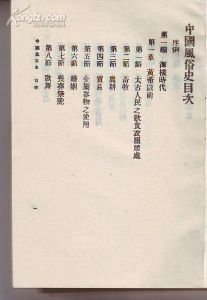 中國風俗史目次
序例
第一編 渾樸時代
第一章 黃帝以前
第一節 太古人民之飲食衣服居處
第二節 畜牧
第三節 農耕
第四節 貿易
第五節 金屬器物之使用
第六節 婚姻
第七節 喪葬祭祀
第八節 歌舞
中國風俗史 目次
一